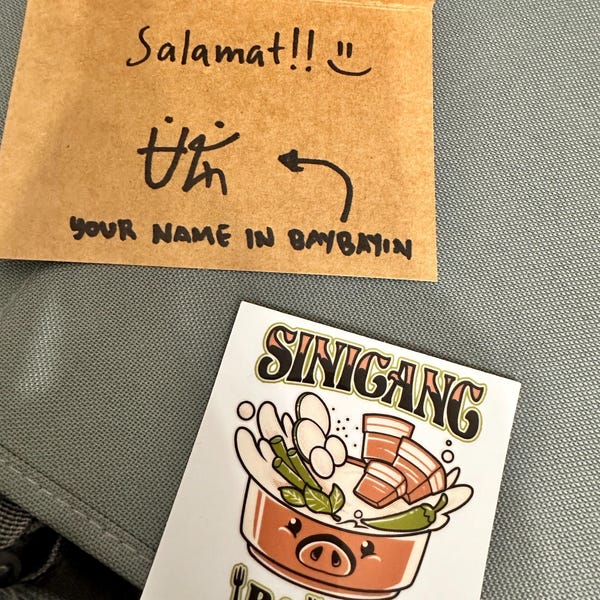 Salamat!! :)
YOUR NAME IN BAYBAYIN
SINIGANG